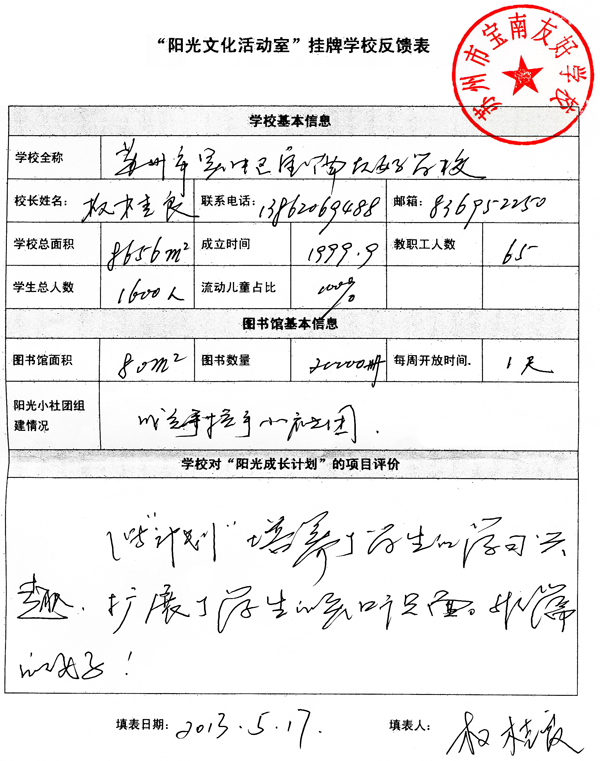 “阳光文化活动室”挂牌学校反馈表
苏州市宝南友好学校
学校基本信息
学校全称 苏州市吴中区宝南友好学校
校长姓名: 权桂良 联系电话: 13862069488 邮箱: 836952250
学校总面积 8656m² 成立时间 1999.9 教职工人数 65
学生总人数 1600人 流动儿童占比 100%
图书馆基本信息
图书馆面积 80m² 图书数量 20000册 每周开放时间. 1天
阳光小社团组
建情况
成立手拉手小社团.
学校对“阳光成长计划”的项目评价
"计划" 培养了学生的学习兴
趣. 扩展了学生的知识面。非常
的好!
填表日期: 2013.5.17. 填表人: 权桂良